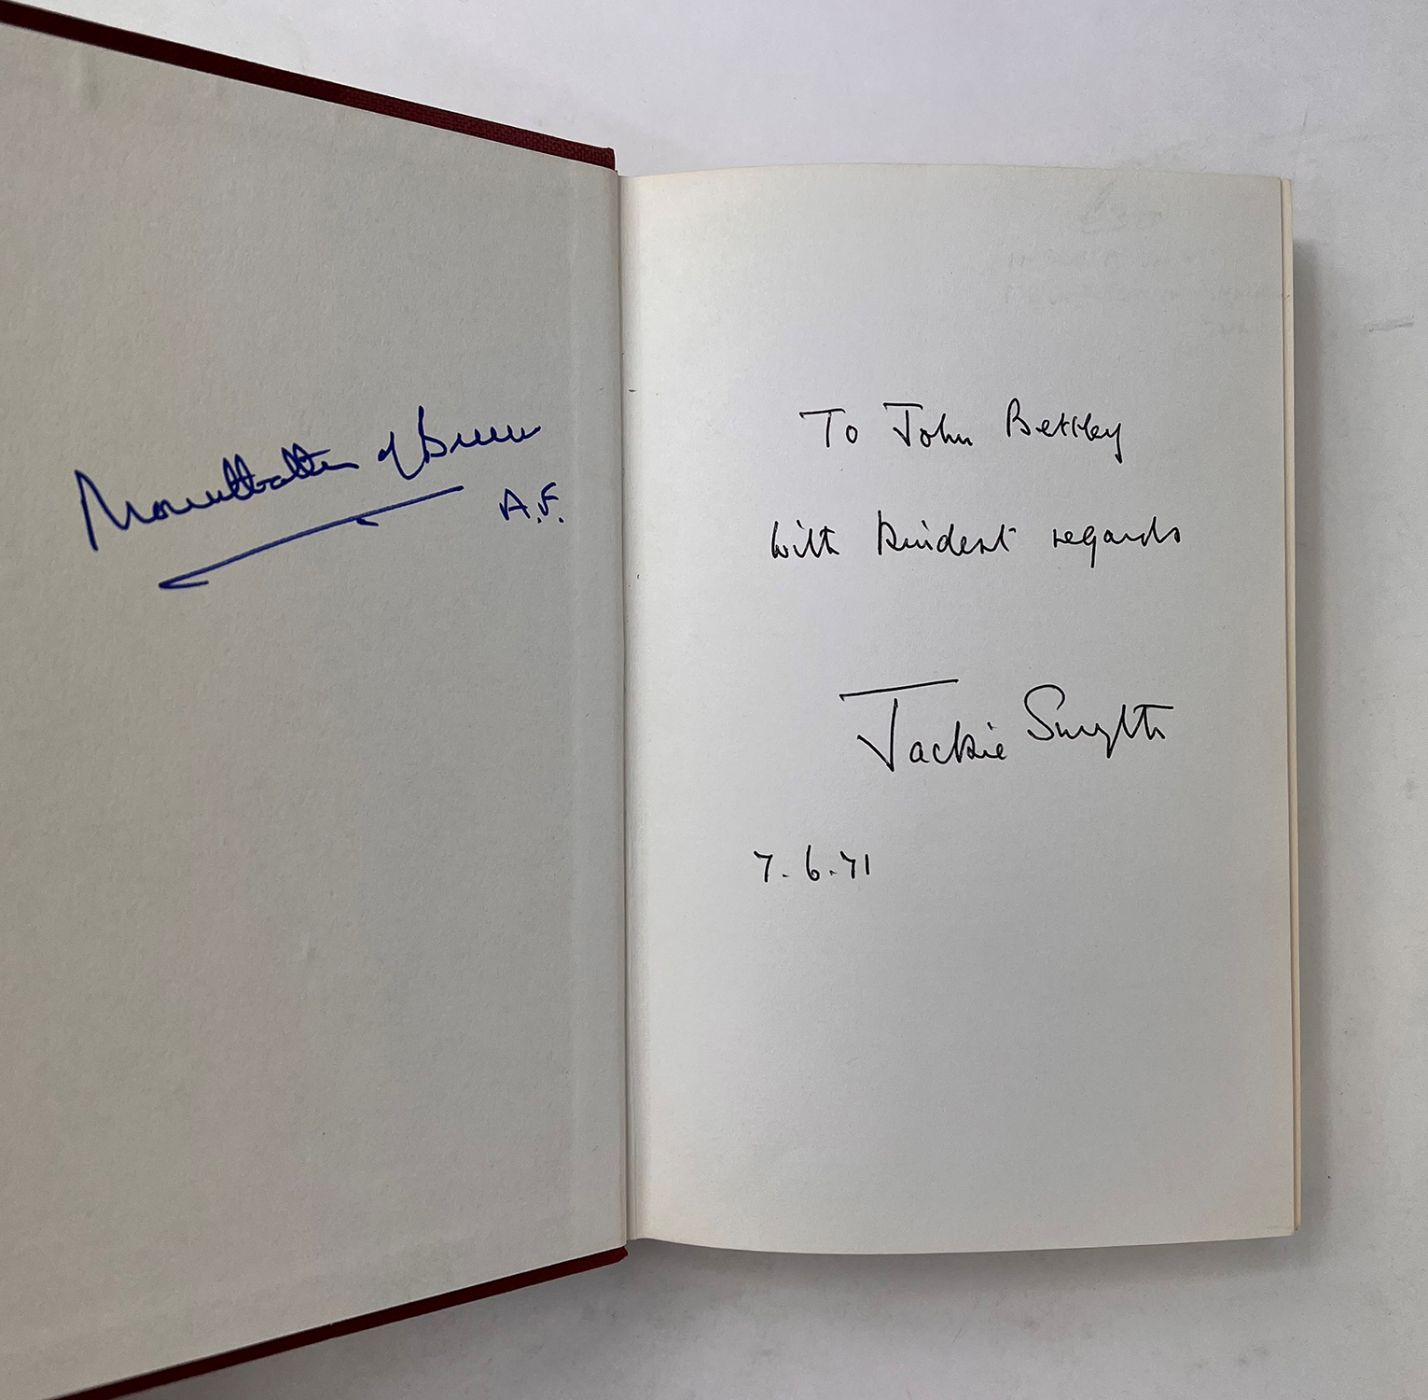 Mountbatten of Burma
A.F.
To John Bettley
With kindest regards
Jackie Smyth
7.6.71